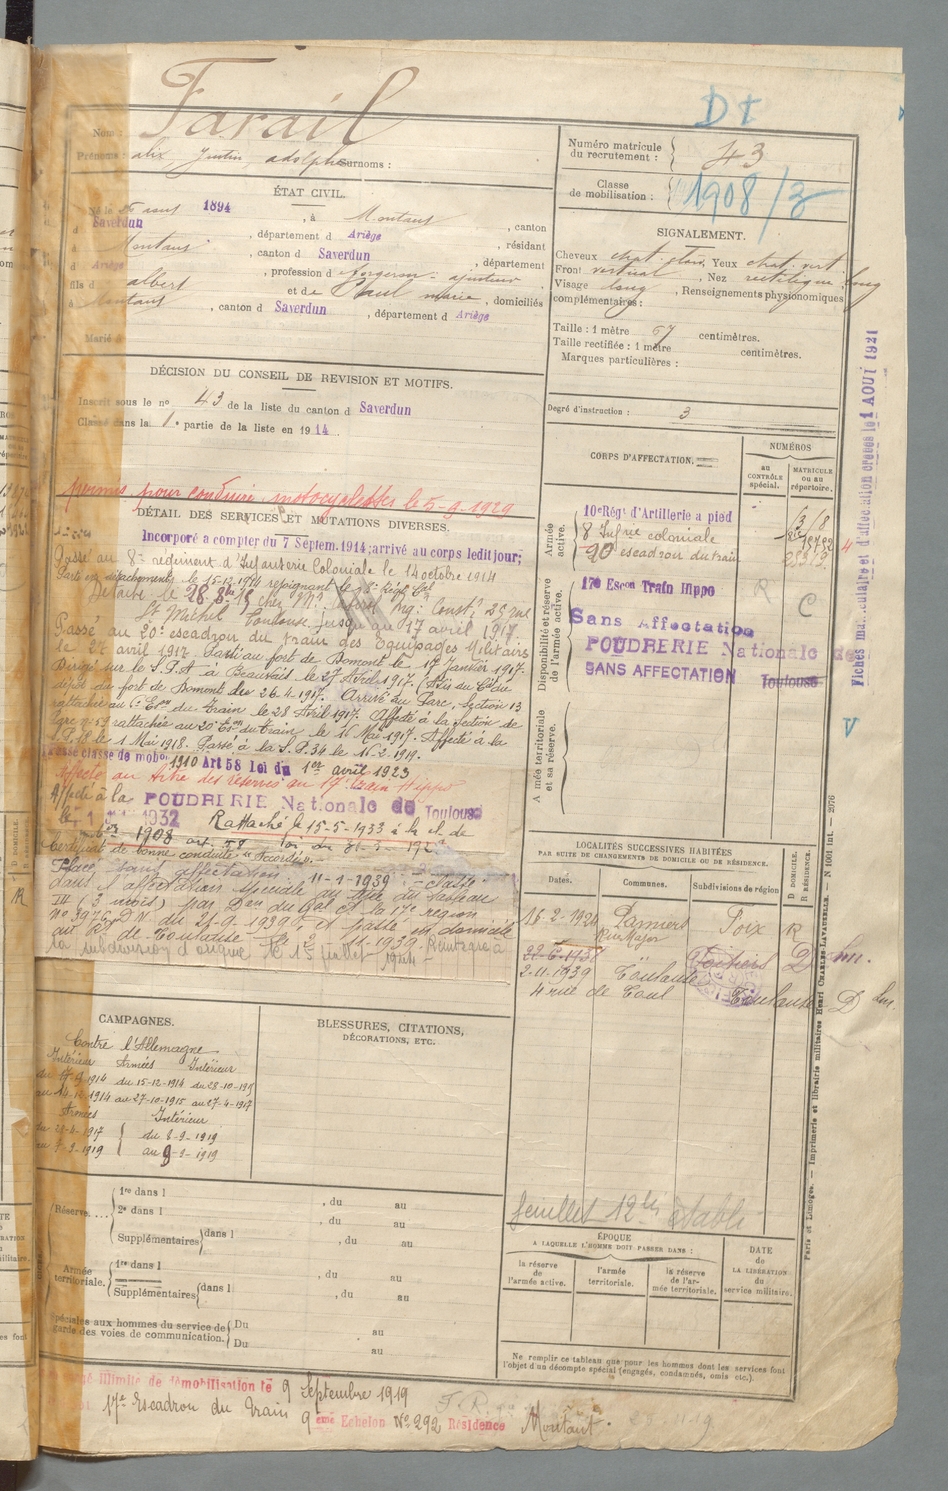 Farail
D I
Nom :
Prénoms : alix, Justin, adolphe Surnoms :
Numéro matricule du recrutement : 43
Classe de mobilisation : 1908/3
ÉTAT CIVIL.
Né le 26 aout 1894, à Montaut, canton
d Saverdun, département d Ariège, résidant
à Montaut, canton d Saverdun, département
d Ariège, profession d forgeron - ajusteur
fils d albert et de Paul marie, domiciliés
à Montaut, canton d Saverdun, département d Ariège
Marié à
SIGNALEMENT.
Cheveux chat. clair, Yeux chat. vert
Front vertical, Nez rectiligne long
Visage long, Renseignements physionomiques
complémentaires :
Taille : 1 mètre 67 centimètres.
Taille rectifiée : 1 mètre centimètres.
Marques particulières :
Degré d'instruction : 3
DÉCISION DU CONSEIL DE REVISION ET MOTIFS.
Inscrit sous le no 43 de la liste du canton d Saverdun
Classé dans la 1e partie de la liste en 1914
permis pour conduire motocyclettes le 5-9-1929
DÉTAIL DES SERVICES ET MUTATIONS DIVERSES.
Incorporé à compter du 7 Septem. 1914; arrivé au corps ledit jour;
Passé au 8e régiment d'Infanterie Coloniale le 14 octobre 1914
Parti en détachement le 15-12-1914 rejoignant le Régt Cal
Détaché le 28 8bre 15 chez Mr Ing. Const. 28 rue
St Michel Toulouse jusqu'au 17 avril 1917.
Passé au 20e escadron du train des Equipages Militaires
le 27 avril 1917. Parti au fort de Domont le 19 Janvier 1917.
Dirigé sur le S.P.A à Beauvais le 27 Avril 1917.
dépôt du fort de Domont des 26.4.1917. Arrivé au Parc, Section 13
rattachée au Eon du Train le 28 Avril 1917. Affecté à la Section de
Parc no rattachée au 20e Eon du train, le 16 Mai 1917. Affecté à la
S.P. 18 le 1 Mai 1918. Passé à la S.P. 34 le 16-2-1919.
Passé classe de mobon 1910 Art 58 Loi du 1er avril 1923
Affecté au titre des réserves au 17e train Hippo
Affecté à la POUDRERIE Nationale de Toulouse
le 1 1932 Rattaché le 15-5-1933 à la cl. de
mob. 1908 art. 58 loi du 31-3-1928
Certificat de bonne conduite "Accordé".
Placé "sans affectation" 11-1-1939 - classé
dans l'affectation spéciale au titre du Tableau
III (3 mois) par Don du Gal Ct la 17e région
No 3976 du 21-9-1939, et passe en domicile
au Rt de Toulouse le 2-11-1939. Réintégré à
la subdivision d'origine le 15 juillet 1944
CORPS D'AFFECTATION.
NUMÉROS
AU CONTRÔLE spécial.
MATRICULE ou au répertoire.
Armée active.
10e Régt d'Artillerie a pied
8 Infrie coloniale
20e escadron du train
Disponibilité et réserve de l'armée active.
17e Escon Train Hippo
R
C
Sans Affectation
POUDRERIE Nationale de
SANS AFFECTATION
Toulouse
Armée territoriale et sa réserve.
Fiches matriculaire et d'affectation créées le 1 AOUT 1921
V
LOCALITÉS SUCCESSIVES HABITÉES
PAR SUITE DE CHANGEMENTS DE DOMICILE OU DE RÉSIDENCE.
Dates.
Communes.
Subdivisions de région
D DOMICILE.
R RÉSIDENCE.
16-2-1924 Pamiers Foix R
Rue Major
22-6-1931 Poitiers D
2-11-1939 Toulouse
4 rue de Toul Toulouse D
feuillet 12 bis établi
CAMPAGNES.
Contre l'Allemagne
Intérieur Armées Intérieur
du 7-9-1914 du 15-12-1914 du 28-10-1915
au 14-12-1914 au 27-10-1915 au 27-4-1917
Armées Intérieur
du 28-4-1917 du 8-9-1919
au 7-9-1919 au 9-9-1919
BLESSURES, CITATIONS,
DÉCORATIONS, ETC.
Réserve....
1re dans l , du au
2e dans l , du au
Supplémentaires dans l , du au
Armée territoriale.
1re dans l , du au
Supplémentaires dans l , du au
Spéciales aux hommes du service de garde des voies de communication.
Du au
Du au
ÉPOQUE
A LAQUELLE L'HOMME DOIT PASSER DANS :
la réserve de l'armée active.
l'armée territoriale.
la réserve de l'armée territoriale.
DATE de LA LIBÉRATION du service militaire.
Ne remplir ce tableau que pour les hommes dont les services font
l'objet d'un décompte spécial (engagés, condamnés, omis etc.).
Paris et Limoges. — Imprimerie et librairie militaires Henri CHARLES-LAVAUZELLE. — N 1001 int. — 2076
Congé illimité de démobilisation le 9 Septembre 1919
17e Escadron du Train 9 ème Echelon No 292 Résidence Montaut.